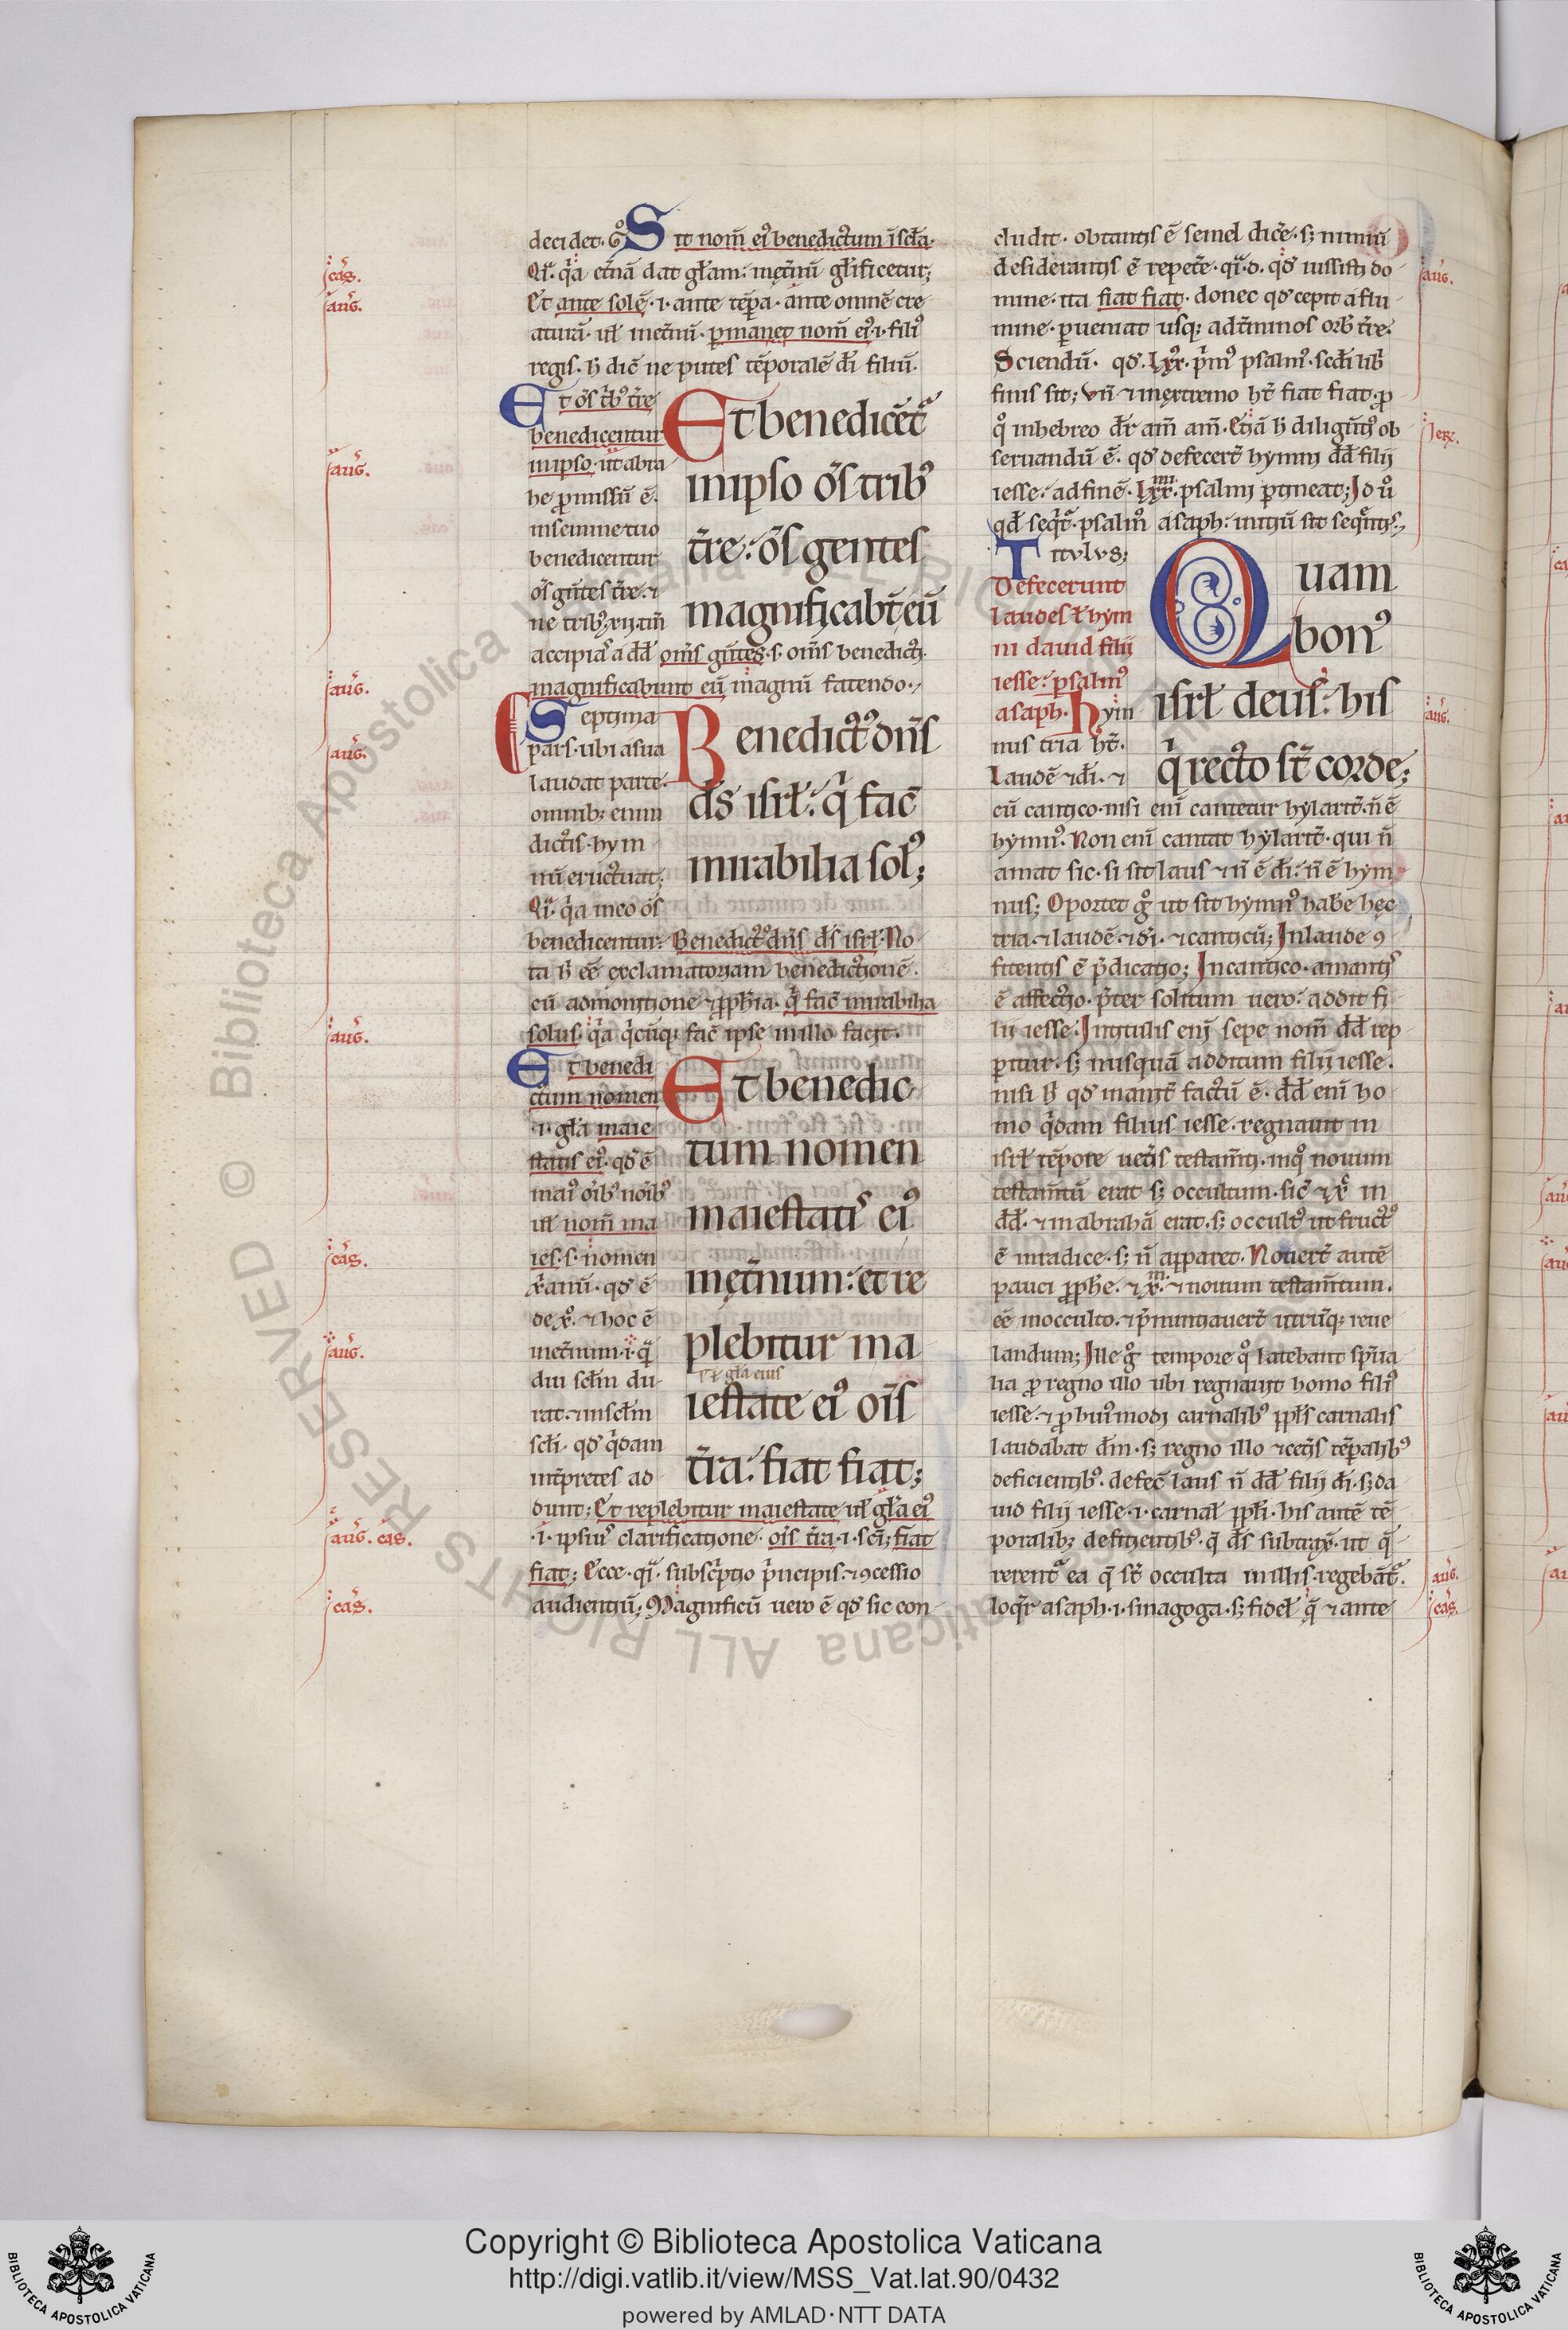 decidet. gͦ Sit nom̄ eiꝰ benedictum ī scl̄a.
Qͥ. qͣa et̄nā dat gl̄am. inęt̄nū gl̄ificetur;
Et ante solē .i. ante tēpa. ante omnē cre
aturā. ul̓ inet̄nū. ꝑmanet nom̄ eiꝰ .i. filiꝰ
regis. h̄ dic̄ ne putes tēporalē di̅ filiū.
Et oēs tͥbꝰ tr̄e
benedicentur
in ipso. ut abra
he ꝓmissū ē.
in semine tuo
benedicentur
oēs gentes tr̄e.
accipias a dd̄ om̄s gentes .s. om̄s benedicti.
magnificabunt eū magnū fatendo.
Et benedicēt᷑
in ipso oēs tribꝰ
tr̄e. oēs gentes
magnificabt̄ eū
Septima
pars. ubi a sua
laudat parte.
omnib; enim
dictis. hym
nū eructuat;
Qͥ. qͣa in eo oēs
benedicentur. Benedictꝰ dn̄s ds̄ isrl̄. No
ta h̄ eē exclamatoriam benedictionē.
cū admonitione ꞇ ꝓph̄ia. qͥ fac̄ mirabilia
solus. qͣa qͥcūq; fac̄ ipse in illo facit.
Benedictꝰ dn̄s
ds̄ isrl̄. qͥ fac̄
mirabilia solꝰ;
Et benedi
ctum nomen
.i. gl̄a maie
statis eiꝰ. qd̄ ē
maiꝰ oīb; noīb;
ul̓ nom̄ ma
ies. s. nomen
xͥanū. qd̄ ē
de xͦ. ꞇ hoc ē
inet̄num .i. qͣ
diu sclm̄ du
rat. ꞇ in sclm̄
scli̅. qd̄ qͥdam
int̄pretes ad
dunt; Et replebitur maiestate ul̓ gl̄a eiꝰ
.i. ipsiꝰ clarificatione. oīs tr̄a .i. sci̅; fiat
fiat; Ecce. qͥ. subscͥptio pͥncipis. ꞇ ꝯcessio
audientiū; Magnificū uero ē qd̄ sic con
Et benedic
tum nomen
maiestatis eiꝰ
inęt̄num. et re
plebitur ma
gl̄a eius
iestate eiꝰ oīs
tr̄a. fiat fiat;
cludit. obtantis ē semel dic̄e. s; nimiū
desiderantis ē repet̄e. qͥ. d. qd̄ iussisti do
mine. ita fiat fiat. donec qd̄ cepit a flu
mine. ꝑueniat usq; ad t̄minos orb̄ tr̄e.
Sciendū. qd̄. lxx. pͥmꝰ psalmꝰ. scd̄i lib̄
finis sit; vn̄ ꞇ in extremo ht̄ fiat fiat. ꝓ
qͦ in hebreo dr̄ am̄ am̄. Etiā h̄ diligentiꝰ ob
seruandū ē. qd̄ defecert̄ hymni dd̄ filii
iesse. ad finē. lxx. psalmi ꝑtineat; Id u̅o
qd̄ seqͥt᷑. psalmꝰ asaph. initiū sit sequentis.
Titvlvs;
Defecerunt
laudes ul̓ hym
ni dauid filii
iesse. psalmꝰ
asaph. Hym
nus tria ht̄.
laudē ꞇ di̅. ꞇ
cū cantico. nisi enī cantetur hylarit̄. n̄ ē
hymnꝰ. Non enī cantat hylarit̄. qui n̄
amat sic. si sit laus ꞇ n̄ ē di̅. n̄ ē hym
nus; Oportet gͦ ut sit hymnꝰ hab̄e hęc
tria. ꞇ laudē. ꞇ di̅. ꞇ canticū; In laude ꝯ
fitentis ē p̄dicatio; In cantico. amantis
ē affectio. p̄ter solitum uero. addit fi
lii iesse. In titulis enī sepe nom̄ dd̄ rep
ꝑitur. s; nusquā additum filii iesse.
nisi h̄ qd̄ manit̄ factū ē. dd̄ enī ho
mo qͥdam filius iesse. regnauit in
isrl̄ tēpore uetͥis testam̄ti. in qͦ nouum
testam̄tū erat s; occultum. sic̄ ꞇ xͦ in
dd̄. ꞇ in abrahā erat. s; occultꝰ ut fructꝰ
ē in radice. s; n̄ apparet. Nouert̄ autē
pauci ꝓph̄e. ꞇ xͫ. ꞇ nouum testam̄tum.
eē in occulto. ꞇ p̄nuntiauert̄ utrūq; reue
landum; Ille gͦ tempore qͦ latebant sp̄ua
lia ꝓ regno illo ubi regnauit homo filiꝰ
iesse. ꞇ ꝓ huiꝰmodi carnalibꝰ ppl̄s carnalis
laudabat dm̄. s; regno illo ꞇ cet̄is tēpalibꝰ
deficientibꝰ. defec̄ laus n̄ dd̄ filii di̅. s; da
uid filii iesse .i. carnal̓ ppl̄i. his autē tē
poralib; deficientibꝰ. qͣ ds̄ subtrax̄. ut qͣ
rerent᷑ ea qͣ st̄ occulta in illis. regebāt᷑.
loqͥt᷑ asaph .i. sinagoga. s; fidel̓ qͣ ꞇ ante
Quam
bonꝰ
isrl̄ deus. his
qͥ recto st̄ corde;
cas.
aug.
aug.
aug.
aug.
aug.
cas.
aug.
aug. cas.
cas.
aug.
Ier.
aug.
aug.
cas.
© Biblioteca Apostolica Vaticana ALL RIGHTS RESERVED
Copyright © Biblioteca Apostolica Vaticana
http://digi.vatlib.it/view/MSS_Vat.lat.90/0432
powered by AMLAD·NTT DATA
BIBLIOTECA APOSTOLICA VATICANA
BIBLIOTECA APOSTOLICA VATICANA